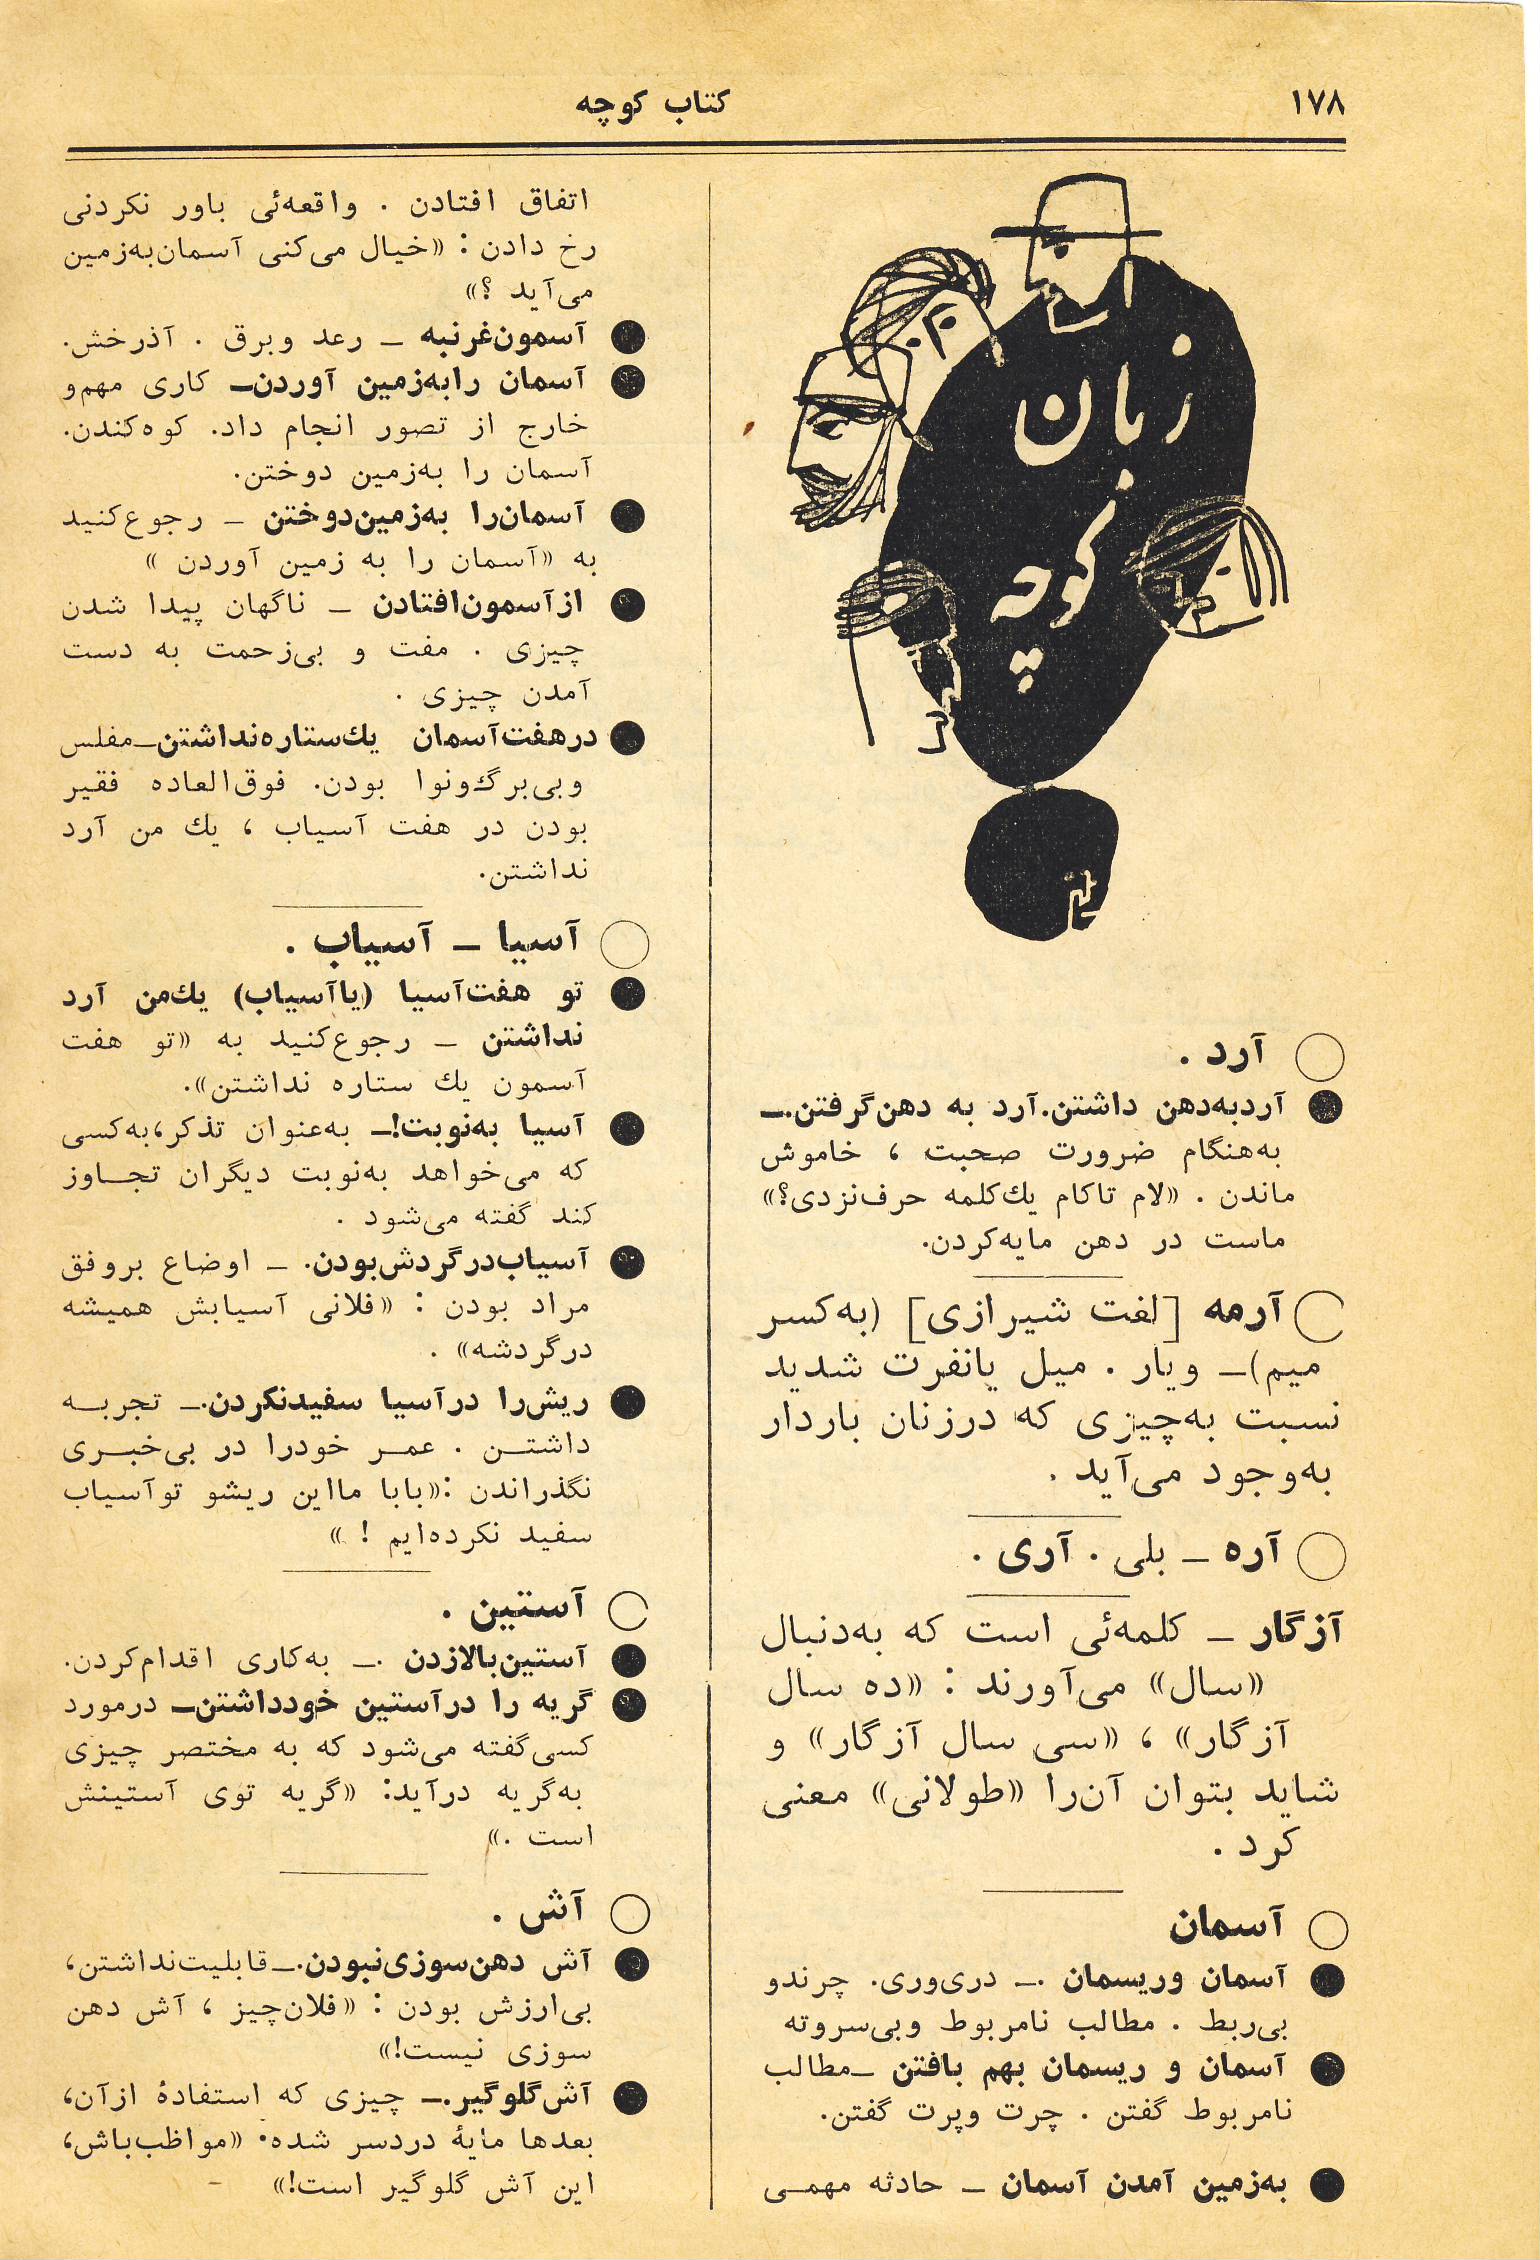 ۱۷۸
کتاب کوچه
زبان
کوچه
آرد .
آردبه‌دهن داشتن.آرد به دهن‌گرفتن.ـ
به‌هنگام ضرورت صحبت ، خاموش
ماندن . «لام تاکام یك‌کلمه حرف‌نزدی؟»
ماست در دهن مایه‌کردن.
آرمه [لغت شیرازی] (به‌کسر
میم)ـ ویار . میل یانفرت شدید
نسبت به‌چیزی که درزنان باردار
به‌وجود می‌آید .
آره ـ بلی . آری .
آزگار ـ کلمه‌ئی است که به‌دنبال
«سال» می‌آورند : «ده سال
آزگار» ، «سی سال آزگار» و
شاید بتوان آن‌را «طولانی» معنی
کرد .
آسمان
آسمان وریسمان .ـ دری‌وری. چرندو
بی‌ربط . مطالب نامربوط وبی‌سروته
آسمان و ریسمان بهم بافتن ـمطالب
نامربوط گفتن . چرت وپرت گفتن.
به‌زمین آمدن آسمان ـ حادثه مهمـی
اتفاق افتادن . واقعه‌ئی باور نکردنی
رخ دادن : «خیال می‌کنی آسمان‌به‌زمین
می‌آید ؟»
آسمون‌غرنبه ـ رعد وبرق . آذرخش.
آسمان رابه‌زمین آوردن‌ـ کاری مهم‌و
خارج از تصور انجام داد. کوه‌کندن.
آسمان را به‌زمین دوختن.
آسمان‌را به‌زمین‌دوختن ـ رجوع‌کنید
به «آسمان را به زمین آوردن »
ازآسمون‌افتادن ـ ناگهان پیدا شدن
چیزی . مفت و بی‌زحمت به دست
آمدن چیزی .
درهفت‌آسمان یك‌ستاره‌نداشتن‌ـمفلس
وبی‌برگ‌ونوا بودن. فوق‌العاده فقیر
بودن در هفت آسیاب ، یك من آرد
نداشتن.
آسیا ـ آسیاب .
تو هفت‌آسیا (یاآسیاب) یك‌من آرد
نداشتن ـ رجوع‌کنید به «تو هفت
آسمون یك ستاره نداشتن».
آسیا به‌نوبت!ـ به‌عنوان تذکر،به‌کسی
که می‌خواهد به‌نوبت دیگران تجـاوز
کند گفته می‌شود .
آسیاب‌درگردش‌بودن. ـ اوضاع بروفق
مراد بودن : «فلانی آسیابش همیشه
درگردشه» .
ریش‌را درآسیا سفیدنکردن.ـ تجربـه
داشتـن . عمـر خودرا در بی‌خبـری
نگذراندن :«بابا مااین ریشو توآسیاب
سفید نکرده‌ایم ! »
آستین .
آستین‌بالازدن .ـ به‌کاری اقدام‌کردن.
گریه را درآستین خودداشتن‌ـ درمورد
کسی‌گفته می‌شود که به مختصر چیزی
به‌گریه درآید: «گریه توی آستینش
است .»
آش .
آش دهن‌سوزی‌نبودن.ـقابلیت‌نداشتن،
بی‌ارزش بودن : «فلان‌چیز ، آش دهن
سوزی نیست!»
آش‌گلوگیر.ـ چیزی که استفادۀ ازآن،
بعدها مایۀ دردسر شده. «مواظب‌باش،
این آش گلوگیر است!»